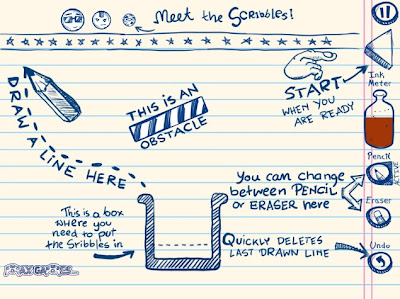 Meet the Scribbles!
DRAW A LINE HERE
THIS IS AN
OBSTACLE
START
WHEN YOU
ARE READY
Ink
Meter
Pencil
ACTIVE
You can change
between PENCIL
or ERASER here
Eraser
This is a box
where you
need to put
the Scribbles in
QUICKLY DELETES
LAST DRAWN LINE
Undo